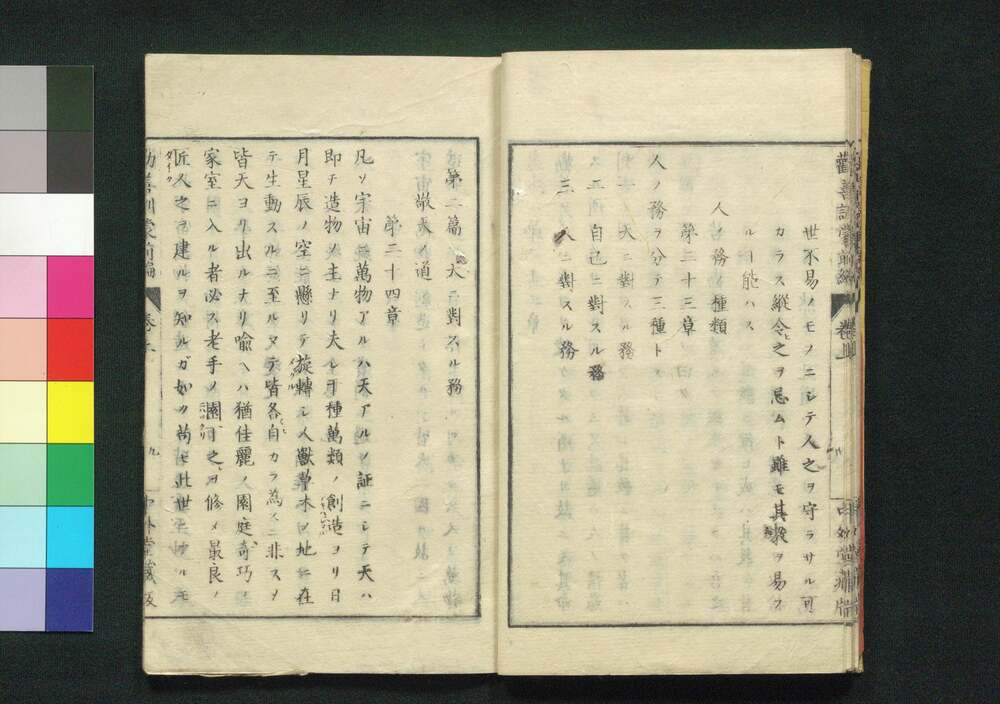 世不易ノモノニシテ人之ヲ守ラサル可
カラス縱令之ヲ忌ムト雖モ其教ヲ易ス
ルヿ能ハス
人ノ務ノ種類
第二十三章
人ノ務ヲ分テ三種トス
一 天ニ對スル務
二 自己ニ對スル務
三 人ニ對スル務
第二篇 天ニ對スル務
宇宙
敬天ノ道
第二十四章
凡ソ宇宙ニ萬物アルハ天アルノ証ニシテ天ハ
即チ造物ノ主ナリ夫レ千種萬類ノ創造ヨリ日
月星辰ノ空ニ懸リテ旋轉シ人獸草木ノ地ニ在
テ生動スルニ至ルマテ皆各自カラ為スニ非スシテ
皆天ヨリ出ルナリ喩ヘハ猶佳麗ノ園庭奇巧ノ
家室ニ入ル者必ス老手ノ園丁之ヲ修メ最良ノ
匠人之ヲ建ルヲ知ルガ如シ苟モ此世
勸善訓蒙前編 卷上 九 中外堂藏版